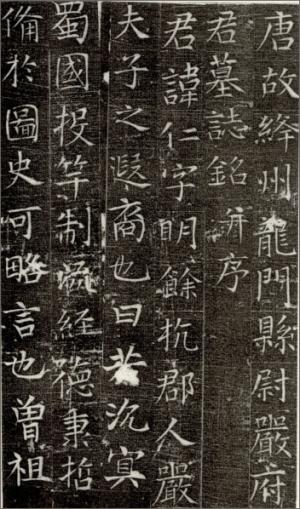 唐故絳州龍門縣尉嚴府
君墓誌銘并序
君諱仁字明餘杭郡人嚴
夫子之遐裔也曰若沉冥
蜀國投竿制經德秉哲
俻於圖史可略言也曽祖